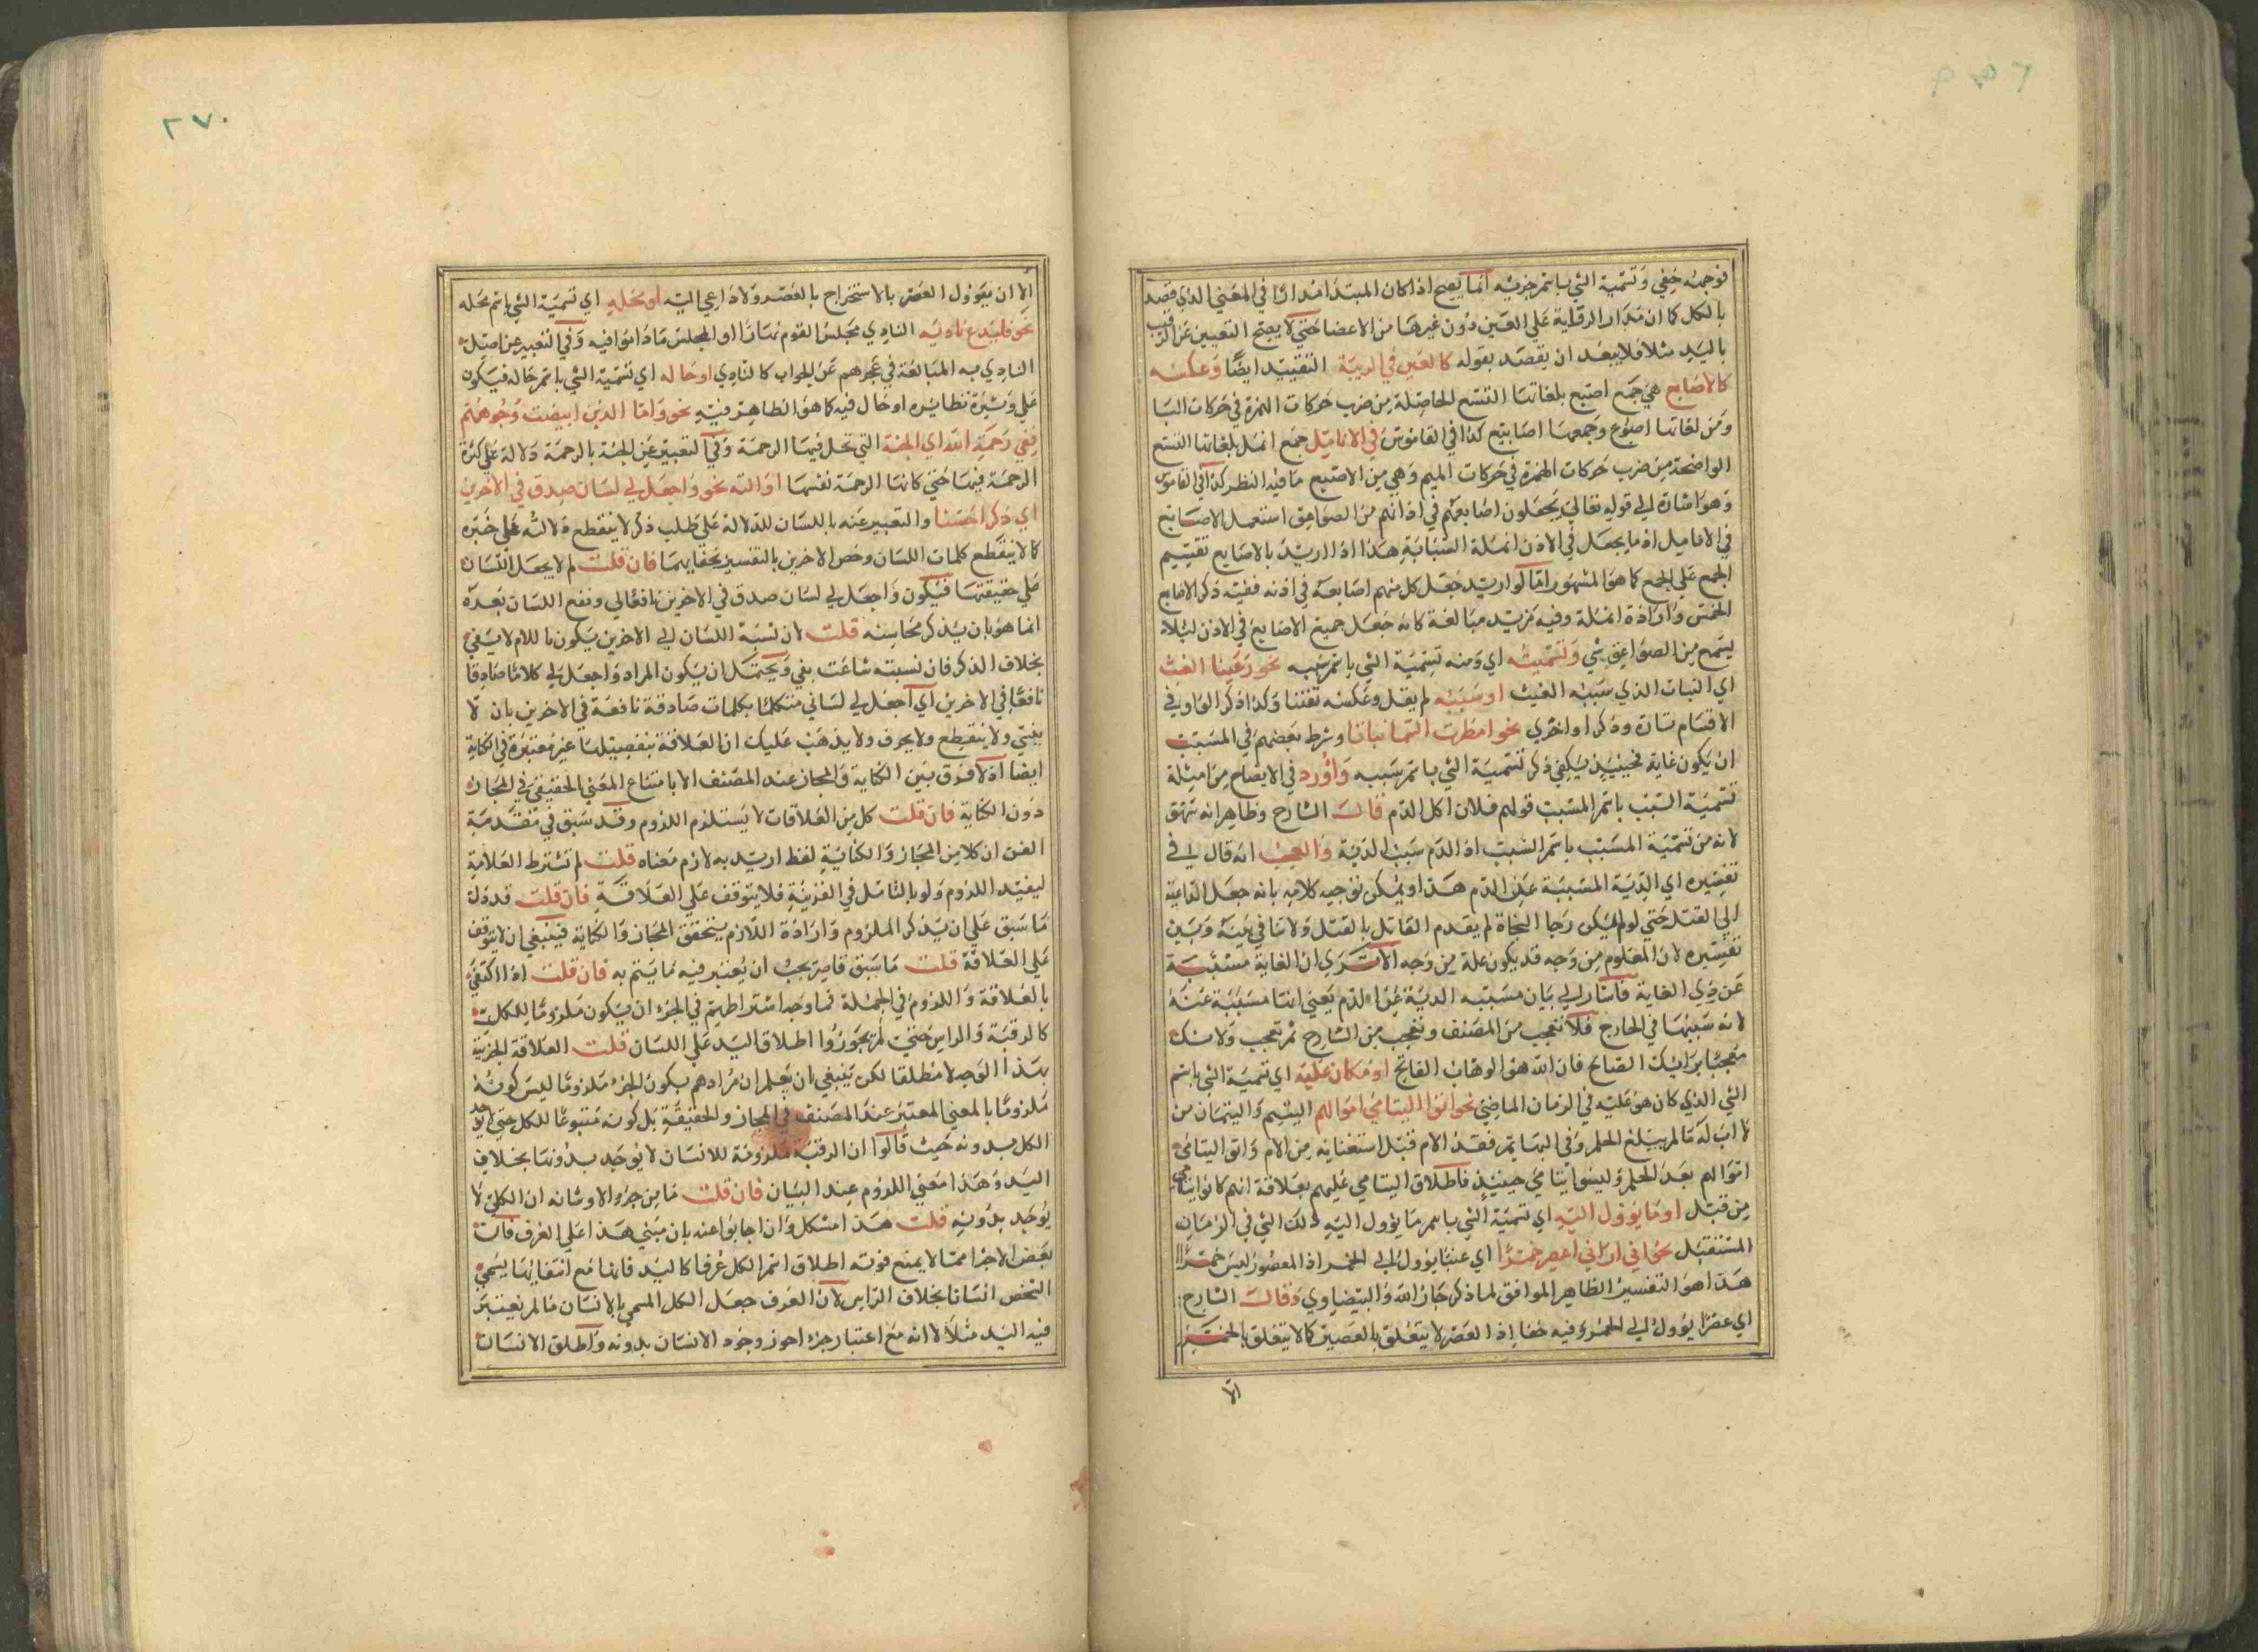 فوجهه خفي وتسمية الشي باسم جزئه انما يصح اذا كان المبتدا مدارا في المعني الذي قصد
بالكل كما ان مدار الرقابة علي العين دون غيرها من الاعضا حتي لا يصح التعبير عن الرقيب
باليد مثلا فلا يبعد ان يقصد بقوله كالعين في الربية التقييد ايضا وعكسه
كالاصابع هي جمع اصبع بلغاتها التسع الحاصلة من ضرب حركات الهمزة في حركات البا
ومن لغاتها اصبوع وجمعها اصابيع كذا في القاموس في الانامل جمع انمل بلغاتها التسع
الواضحة من ضرب حركات الهمزة في حركات الميم وهي من الاصبع ما فيه الظفر كذا في القاموس
وهو اشارة الي قوله تعالي يجعلون اصابعهم في اذانهم من الصواعق استعمل الاصابع
في الانامل اذ ما يجعل في الاذن انملة السبابة هذا اذا اريد بالاصابع تقسيم
الجمع علي الجمع كما هو المشهور اما لو اريد جعل كل منهم اصابعه في اذنه ففيه ذكر الاصابع
الخمس وارادة انملة وفيه مزيد مبالغة كانه جعل جميع الاصابع في الاذن ليلا
يسمع من الصواعق شي وتسميته اي ومنه تسمية الشي باسم سببه نحو رعينا الغيث
اي النبات الذي سببه الغيث او سببه لم يقل وعكسه تفننا وكذا ذكر الواو في
الاقسام تارة وذكر او اخري نحو امطرت السما نباتا وشرط بعضهم في المسبب
ان يكون غاية فحينيذ يكفي ذكر تسمية الشي باسم سببه واورد في الايضاح من امثلة
تسمية السبب باسم المسبب قولهم فلان اكل الدم قال الشارح وظاهر انه سهو
لانه من تسمية المسبب باسم السبب اذ الدم سبب الدية والعجب انه قال في
تفسيره اي الدية المسببة عن الدم هذا ويمكن توجيه كلامه بانه جعل الداعية
الي القتل حتي لو لم يكن رجا النجاة لم يقدم القاتل بالقتل ولا تنافي بينه وبين
تفسيره لان المعلوم من وجه قد يكون علة من وجه الا تري ان الغاية مسببة
عن ذي الغاية فاشار الي بيان مسببه الدية عن الدم يعني انها مسببة عنه
لانه سببها في الخارج فلا تعجب من المصنف وتعجب من الشارح ثم تعجب ولا تنك
معجبا برايك الصالح فان الله هو الوهاب الفاتح او ما كان عليه اي تسمية الشي باسم
الشي الذي كان هو عليه في الزمان الماضي نحو اتوا اليتامي اموالهم اليتيم واليتمان من
لا اب له ما لم يبلغ الحلم وفي البهايم فقد الام قبل استغنايه من الام واتوا اليتامي
اموالهم بعد الحلم وليسوا يتامي حينيذ فاطلاق اليتامي عليهم بعلاقة انهم كانوا يتامي
من قبل او ما يؤول اليه اي تسمية الشي باسم ما يؤول اليه ذلك الشي في الزمان
المستقبل نحو اني اراني اعصر خمرا اي عنبا يؤول الي الخمر اذ المعصور ليس خمرا
هذا هو التفسير الظاهر الموافق لما ذكر جار الله والبيضاوي وقال الشارح
اي عصيرا يؤول الي الخمر وفيه خفا اذ العصر لا يتعلق بالعصير كما لا يتعلق بالخمر
الا
٢٧٠
الا ان يؤول العصر بالاستخراج بالعصر ولا داعي اليه او محله اي تسمية الشي باسم محله
نحو فليدع ناديه النادي مجلس القوم نهارا او المجلس ما داموا فيه وفي التعبير عن اهل
النادي به المبالغة في عجزهم عن الجواب كالنادي او حاله اي تسمية الشي باسم حاله فيكون
علي وتيرة نظايره او حال فيه كما هو الظاهر فيه نحو واما الذين ابيضت وجوههم
ففي رحمة الله اي الجنة التي تحل فيها الرحمة وفي التعبير عن الجنة بالرحمة دلالة علي كثرة
الرحمة فيها حتي كانها الرحمة نفسها او الته نحو واجعل لي لسان صدق في الاخرين
اي ذكرا حسنا والتعبير عنه باللسان للدلالة علي طلب ذكر لا ينقطع دلالته علي خبره
كما لا ينقطع كلمات اللسان وخص الاخرين بالتفسير بخفايهما فان قلت لم لا يجعل اللسان
علي حقيقتها فيكون واجعل لي لسان صدق في الاخرين نافعا لي ونفع اللسان بعده
انما هو بان يذكر محاسنه قلت لان نسبة اللسان الي الاخرين يكون باللام لا بفي
بخلاف الذكر فان نسبته شاعت بفي ويحتمل ان يكون المراد واجعل لي كلاما صادقا
نافعا في الاخرين اي اجعل لي لساني متكلما بكلمات صادقة نافعة في الاخرين بان لا
يفني ولا ينقطع ولا يحرف ولا يذهب عليك ان العلاقة بتفصيلها غير معتبرة في الكناية
ايضا اذ لا فرق بين الكناية والمجاز عند المصنف الا بامتناع المعني الحقيقي في المجاز
دون الكناية فان قلت كل من العلاقات لا يستلزم اللزوم وقد سبق في مقدمة
الفن ان كلا من المجاز والكناية لفظ اريد به لازم معناه قلت لم تشترط العلامة
ليفيد اللزوم ولو بالتامل في القرينة فلا يتوقف علي العلاقة فان قلت قد دل
ما سبق علي ان يذكر الملزوم وارادة اللازم يتحقق المجاز والكناية فينبغي ان لا يتوقف
علي العلاقة قلت ما سبق قاصر يجب ان يعتبر فيه ما يتم به فان قلت اذا اكتفي
بالعلاقة واللزوم في الجملة فما وجه اشتراطهم في الجزء ان يكون ملزوما للكل
كالرقبة والراس حتي لم يجوزوا اطلاق اليد علي اللسان قلت العلاقة الجزئية
بهذا الوجه لا مطلقا لكن ينبغي ان يعلم ان مرادهم بكون الجزء ملزوما ليس كونه
ملزوما بالمعني المعتبر عند المصنف في المجاز والحقيقة بل كونه متبوعا للكل حتي لا يوجد
الكل بدونه حيث قالوا ان الرقبة ملزومة للانسان لا يوجد بدونها بخلاف
اليد وهذا معني اللزوم عند البيان فان قلت ما من جزء الا وشانه ان الكل لا
يوجد بدونه قلت هذا مشكل وان اجابوا عنه بان مبني هذا علي العرف فان
بعض الاجزا مما لا يمنع فوته اطلاق اسم الكل عرفا كاليد فانها مع انتفايها يسمي
الشخص انسانا بخلاف الراس لان العرف جعل الكل المسمي بالانسان ما لم يعتبر
فيه اليد مثلا لا انه مع اعتبار جزء احوز وجود الانسان بدونه واطلق الانسان